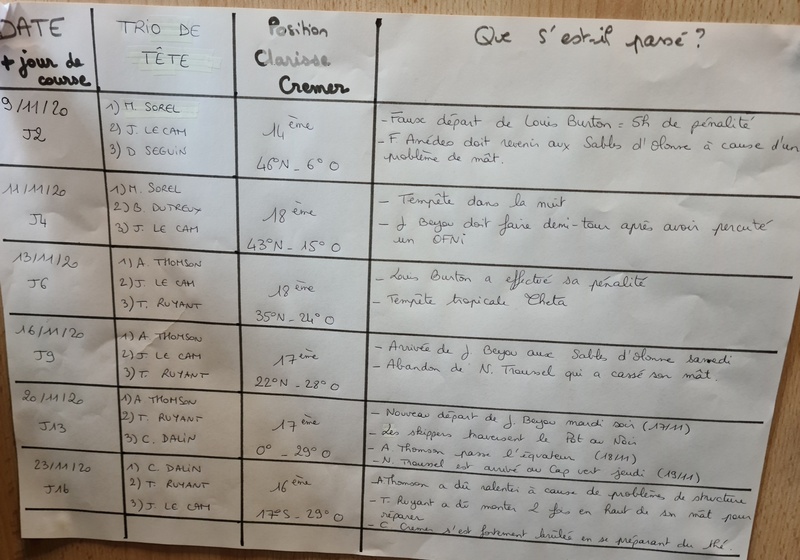 DATE
+ jour de
course
TRIO DE
TÊTE
Position
Clarisse
Cremer
Que s'est-il passé ?
9/11/20
J2
1) M. SOREL
2) J. LE CAM
3) D SEGUIN
14ème
46°N - 6° O
- Faux départ de Louis Burton = 5h de pénalité
- F Amédéo doit revenir aux Sables d'Olonne à cause d'un
problème de mât.
11/11/20
J4
1) M. SOREL
2) B. DUTREUX
3) J. LE CAM
18ème
43°N - 15° O
- Tempête dans la nuit
- J Beyou doit faire demi-tour après avoir percuté
un OFNi
13/11/20
J6
1) A. THOMSON
2) J. LE CAM
3) T. RUYANT
18ème
35°N - 24° O
- Louis Burton a effectué sa pénalité
- Tempête tropicale Theta
16/11/20
J9
1) A THOMSON
2) J. LE CAM
3) T. RUYANT
17ème
22°N - 28° O
- Arrivée de J. Beyou aux Sables d'Olonne samedi
- Abandon de N. Troussel qui a cassé son mât.
20/11/20
J13
1) A THOMSON
2) T. RUYANT
3) C. DALIN
17ème
0° - 29° O
- Nouveau départ de J. Beyou mardi soir (17/11)
- Les skippers traversent le Pot au Noir
- A Thomson passe l'équateur (18/11)
- N. Troussel est arrivé au Cap vert jeudi (19/11)
23/11/20
J16
1) C. DALIN
2) T. RUYANT
3) J. LE CAM
16ème
17°S - 29° O
- A Thomson a dû ralentir à cause de problèmes de structure
- T. Ruyant a dû monter 2 fois en haut de son mât pour
réparer
- C Cremer s'est fortement brûlée en se préparant du thé